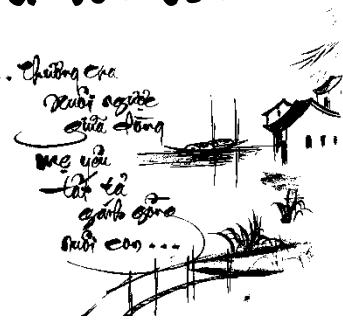 .. Thương cha
xuôi ngược
giữa dòng
mẹ yêu
tần tảo
gánh gồng
nuôi con ...